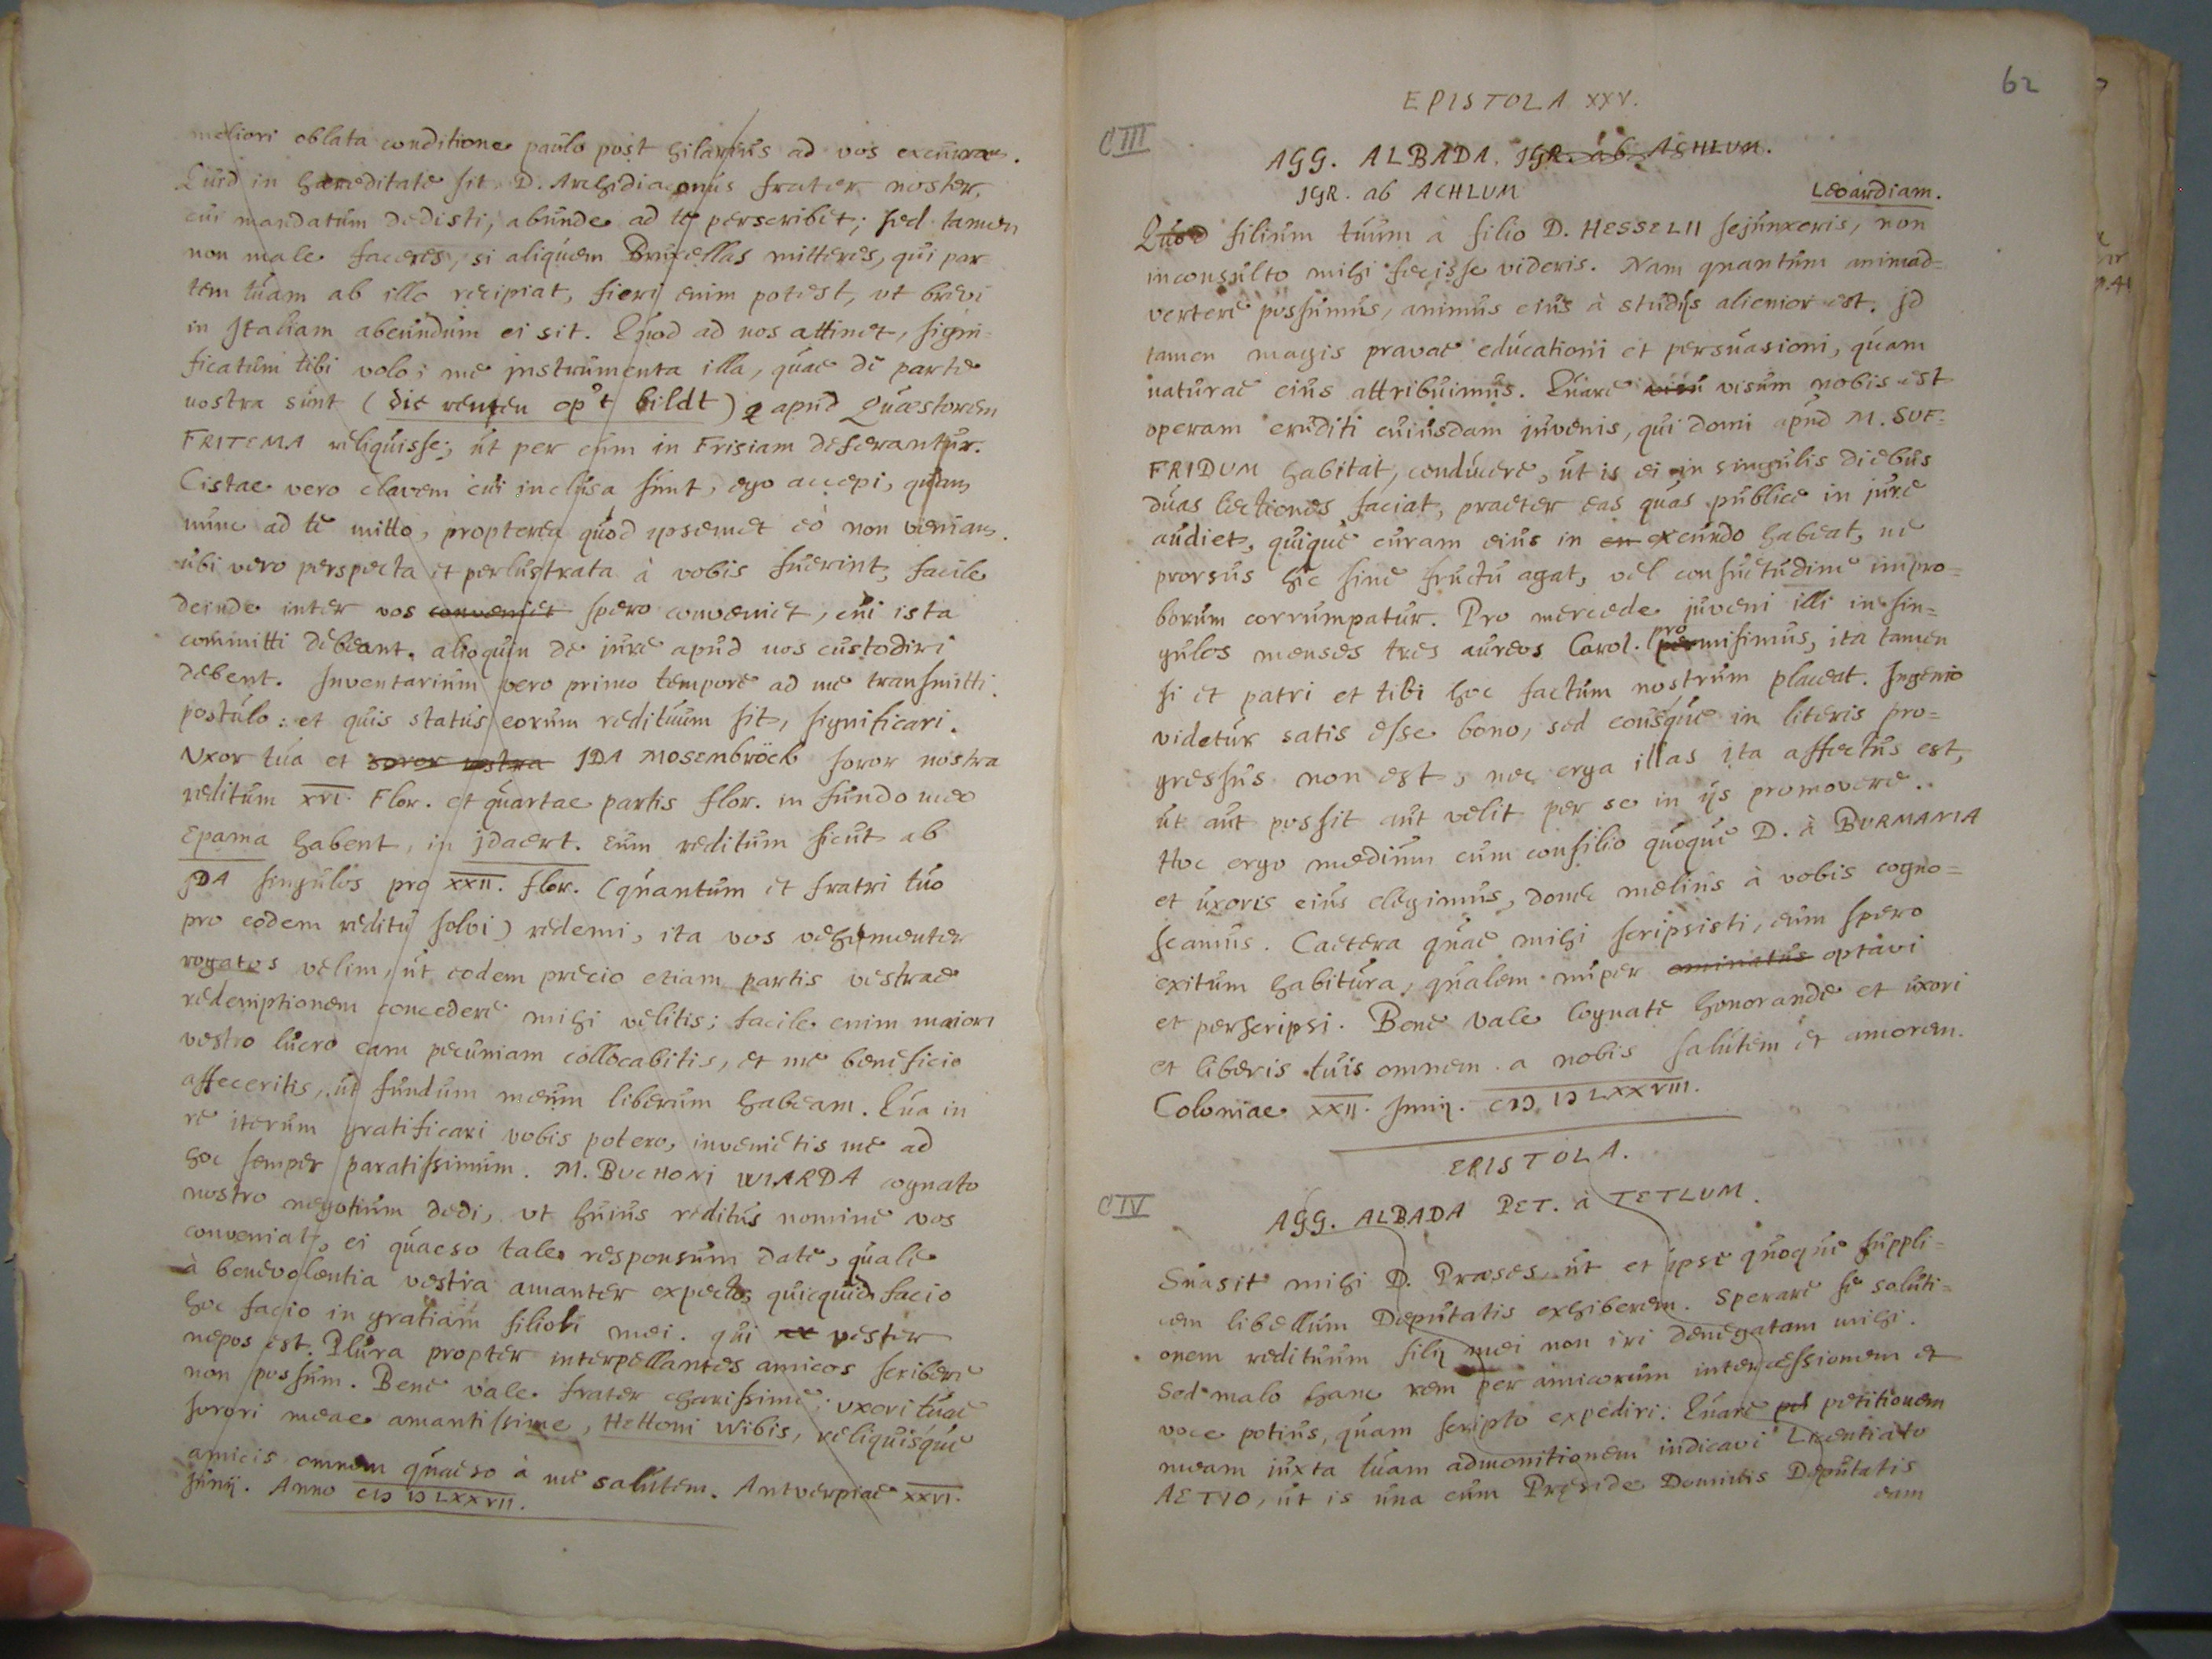 meliori oblata conditione paulo post hilarius ad vos excurram.
Quid in haereditate sit D. Archidiaconus frater noster,
cui mandatum dedisti, abunde ad te perscribet; sed tamen
non male faceres, si aliquem Bruxellas mitteres, qui par
tem tuam ab illo recipiat, fieri enim potest, ut brevi
in Italiam abeundum ei sit. Quod ad nos attinet, signi-
ficatum tibi volo; me instrumenta illa, quae de parte
nostra sunt (die renten op't bildt) apud Quaestorem
FRITEMA reliquisse; ut per eum in Frisiam deferantur.
Cistae vero clavem cui inclusa sunt, ego accepi, quam
nunc ad te mitto, propterea quod ipsemet eò non veniam.
ubi vero perspecta et perlustrata à vobis fuerint, facile
deinde inter vos convenict spero conveniet, cui ista
committi debeant. alioquin de jure apud nos custodiri
debent. Inventarium vero primo tempore ad me transmitti
postulo: et quis status eorum redituum sit, significari.
Uxor tua et soror nostra IDA MOSENBRÖCK soror nostra
reditum XVI. Flor. et quartae partis flor. in fundo meo
Epama habent, in jdaert. eum reditum sicut ab
IDA singulos pro XXII. flor. (quantum et fratri tuo
pro eodem reditu solvi) redemi, ita vos vehementer
rogatos velim, ut eodem precio etiam partis vestrae
redemptionem concedere mihi velitis; facile enim maiori
vestro lucro eam pecuniam collocabitis, et me beneficio
affeceritis, ut fundum meum liberum habeam. Qua in
re iterum gratificari vobis potero, invenietis me ad
hoc semper paratissimum. M. BUCHONI WIARDA cognato
nostro negotium dedi, ut huius reditus nomine vos
conveniat, ei quaeso tale responsum date, quale
à benevolentia vestra amanter expecto, quicquid facio
hoc facio in gratiam filioli mei. qui vester
nepos est. Plura propter interpellantes amicos scribere
non possum. Bene vale frater charissime; uxori tuae
sorori meae amantissime, Hettoni Wibis, reliquisque
amicis omnem quaeso à me salutem. Antverpiae XXVI.
Junij. Anno CIↃ IↃ LXXVII.
62
EPISTOLA XXV.
CIII
AGG. ALBADA. IGR. ab ACHLUM.
IGR. ab ACHLUM
Leoardiam.
Quod filium tuum à filio D. HESSELII sejunxeris, non
inconsulto mihi fecisse videris. Nam quantum animad-
vertere possumus, animus eius à studijs alienior est. Id
tamen magis pravae educationi et persuasioni, quam
naturae eius attribuimus. Quare visum nobis est
operam eruditi cuiusdam juvenis, qui domi apud M. SUF-
FRIDUM habitat, conducere, ut is ei in singulis diebus
duas lectiones faciat, praeter eas quas publice in jure
audiet, quique curam eius in en excundo habeat, ne
prorsus hic sine fructu agat, vel consuetudine impro-
borum corrumpatur. Pro mercede juveni illi in sin-
gulos menses tres aureos Carol. promisimus, ita tamen
si et patri et tibi hoc factum nostrum placeat. Ingenio
videtur satis esse bono, sed eousque in literis pro-
gressus non est, nec erga illas ita affectus est,
ut aut possit aut velit per se in ijs promovere.
Hoc ergo medium cum consilio quoque D. à BURMANIA
et uxoris eius elegimus, donec melius à vobis cogno-
scamus. Caetera quae mihi scripsisti, eum spero
exitum habitura, qualem nuper ominatus optavi
et perscripsi. Bene vale Cognate honorande et uxori
et liberis tuis omnem a nobis salutem et amorem.
Coloniae XXII. Junij. CIↃ IↃ LXXVIII.
EPISTOLA.
CIV
AGG. ALBADA PET. à TETLUM.
Suasit mihi D. Praeses, ut et ipse quoque suppli-
cem libellum Deputatis exhiberem. Sperare se soluti-
onem redituum filij mei non iri denegatam mihi.
Sed malo hanc rem per amicorum intercessionem et
voce potius, quam scripto expediri: Quare pet petitionem
meam iuxta tuam admonitionem indicavi Licentiato
AETIO, ut is una cum Preside Dominis Deputatis
eam